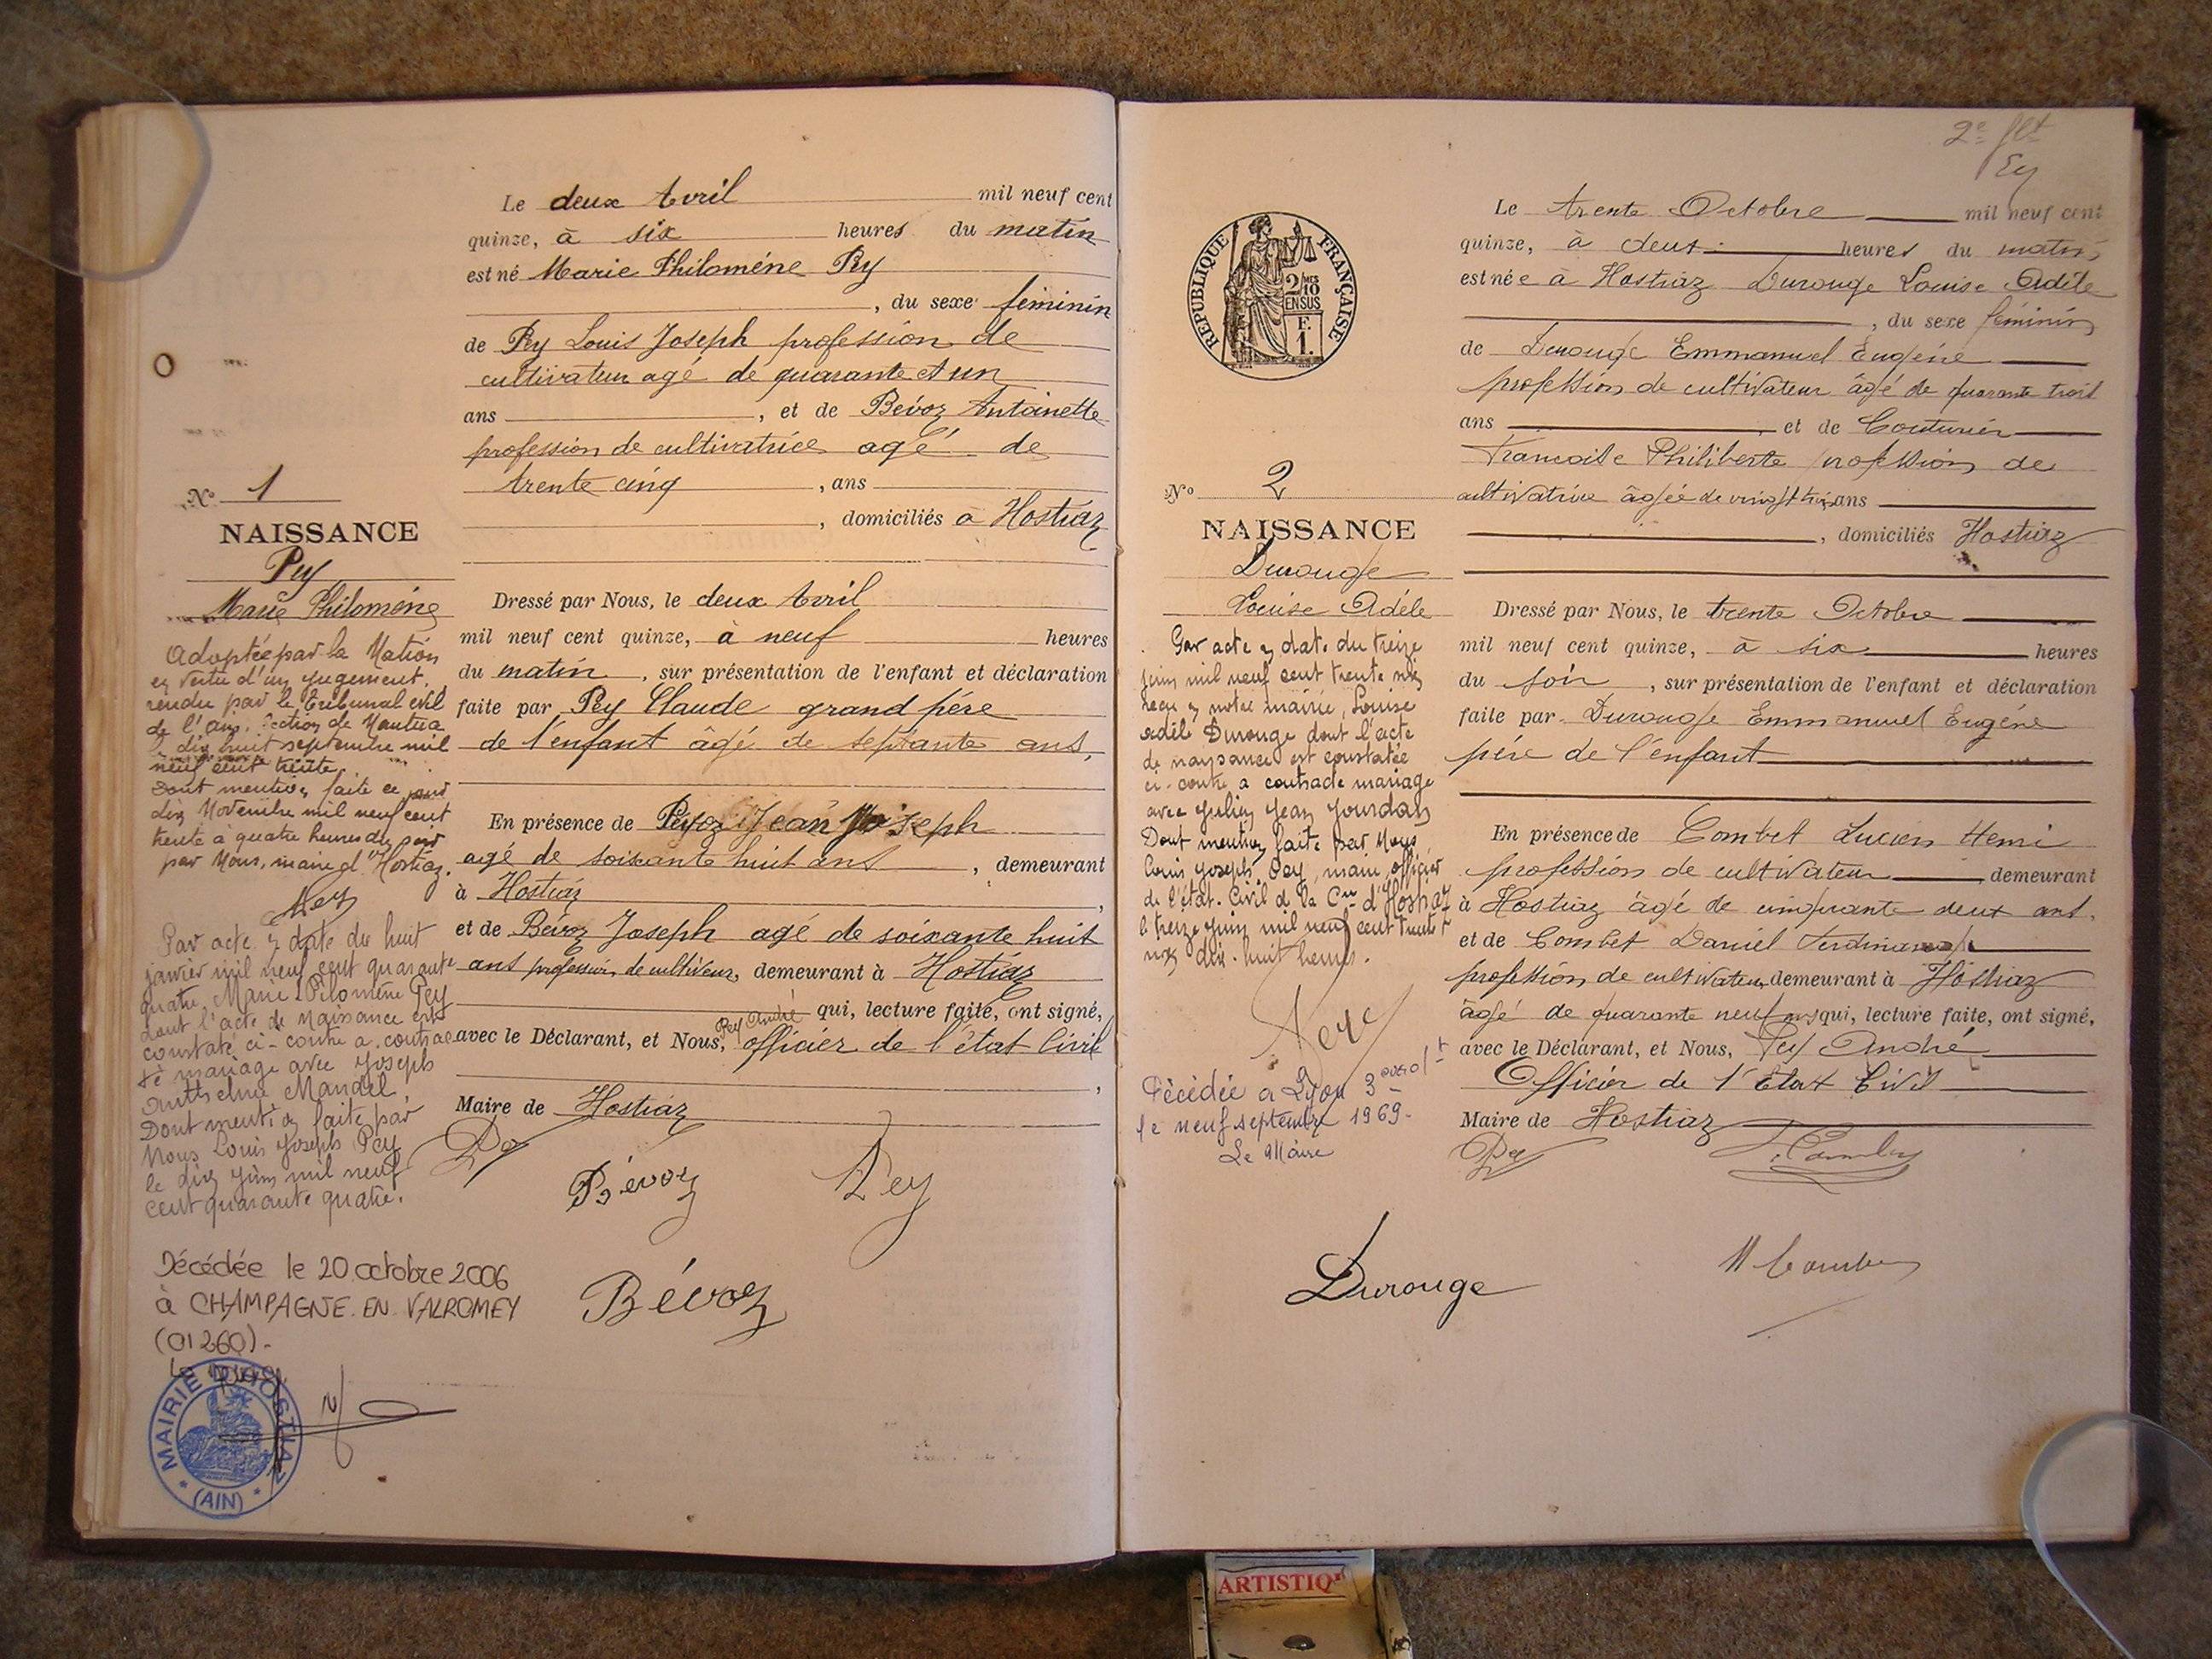 Le deux Avril mil neuf cent
quinze, à six heures du matin
est né Marie Philoméne Pey
, du sexe féminin
de Pey Louis Joseph profession de
cultivateur agé de quarante et un
ans , et de Bévoz Antoinette
profession de cultivatrice agé de
trente cinq , ans
, domiciliés à Hostiaz
N° 1
NAISSANCE
Pey
Marie Philoméne
Dressé par Nous, le deux Avril
mil neuf cent quinze, à neuf heures
du matin , sur présentation de l'enfant et déclaration
faite par Pey Claude grand père
de l'enfant âgé de septante ans,
En présence de Jean Joseph
agé de soixante huit ans , demeurant
à Hostiaz ,
et de Bévoz Joseph agé de soixante huit
ans profession de cultiveur, demeurant à Hostiaz
qui, lecture faite, ont signé,
avec le Déclarant, et Nous, Pey André officier de l'état Civil
,
Maire de Hostiaz
Bévoz
Pey
Bévoz
Adoptée par la Nation
en vertu d'un jugement
rendu par le Tribunal civil
de l'Ain, section de Nantua
le dix huit septembre mil
neuf cent trente.
Dont mention faite ce jour
dix Novembre mil neuf cent
trente à quatre heures du soir
par Nous, maire d'Hostiaz.
Pey
Par acte en date du huit
janvier mil neuf cent quarante
quatre, Marie Pilomène Pey
dont l'acte de naissance est
constaté ci-contre a contrac
té mariage avec Joseph
Anthelme Mandel
Dont mention faite par
Nous Louis Joseph Pey
le dix juin mil neuf
cent quarante quatre.
Décédée le 20 octobre 2006
à CHAMPAGNE. EN. VALROMEY
(01260)-
Le maire,
MAIRIE D'HOSTIAZ
(AIN)
2e flt
Ey
REPUBLIQUE FRANÇAISE
2/10
EN SUS
F.
1.
Le trente Octobre mil neuf cent
quinze, à deux heures du matin
est née à Hostiaz Durouge Louise Adèle
, du sexe féminin
de Durouge Emmanuel Eugéne
profession de cultivateur âgé de quarante trois
ans et de Couturier
Francoise Philiberte profession de
cultivatrice âgée de vingt trois ans
, domiciliés Hostiaz
N° 2
NAISSANCE
Durouge
Louise Adéle
Dressé par Nous, le trente Octobre
mil neuf cent quinze, à six heures
du soir , sur présentation de l'enfant et déclaration
faite par Durouge Emmanuel Eugéne
père de l'enfant
En présence de Combet Lucien Henri
profession de cultivateur , demeurant
à Hostiaz âgé de cinquante deux ans,
et de Combet Daniel Ferdinand
profession de cultivateur demeurant à Hostiaz
âgé de quarante neuf ans qui, lecture faite, ont signé,
avec le Déclarant, et Nous, Pey André
Officier de l'Etat Civil
Maire de Hostiaz
Durouge
Par acte en date du treize
juin mil neuf cent trente six
reçu en notre mairie, Louise
Adèle Durouge dont l'acte
de naissance est constatée
ci-contre a contracté mariage
avec Julien Jean Jourdan
Dont mention faite par Nous
Louis Joseph, Pey, maire, officier
de l'état-Civil de la Cne d'Hostiaz
le treize juin mil neuf cent trente
six dix-huit heures.
Décédée à Lyon 3
le neuf septembre 1969-
Le Maire
ARTISTIQ